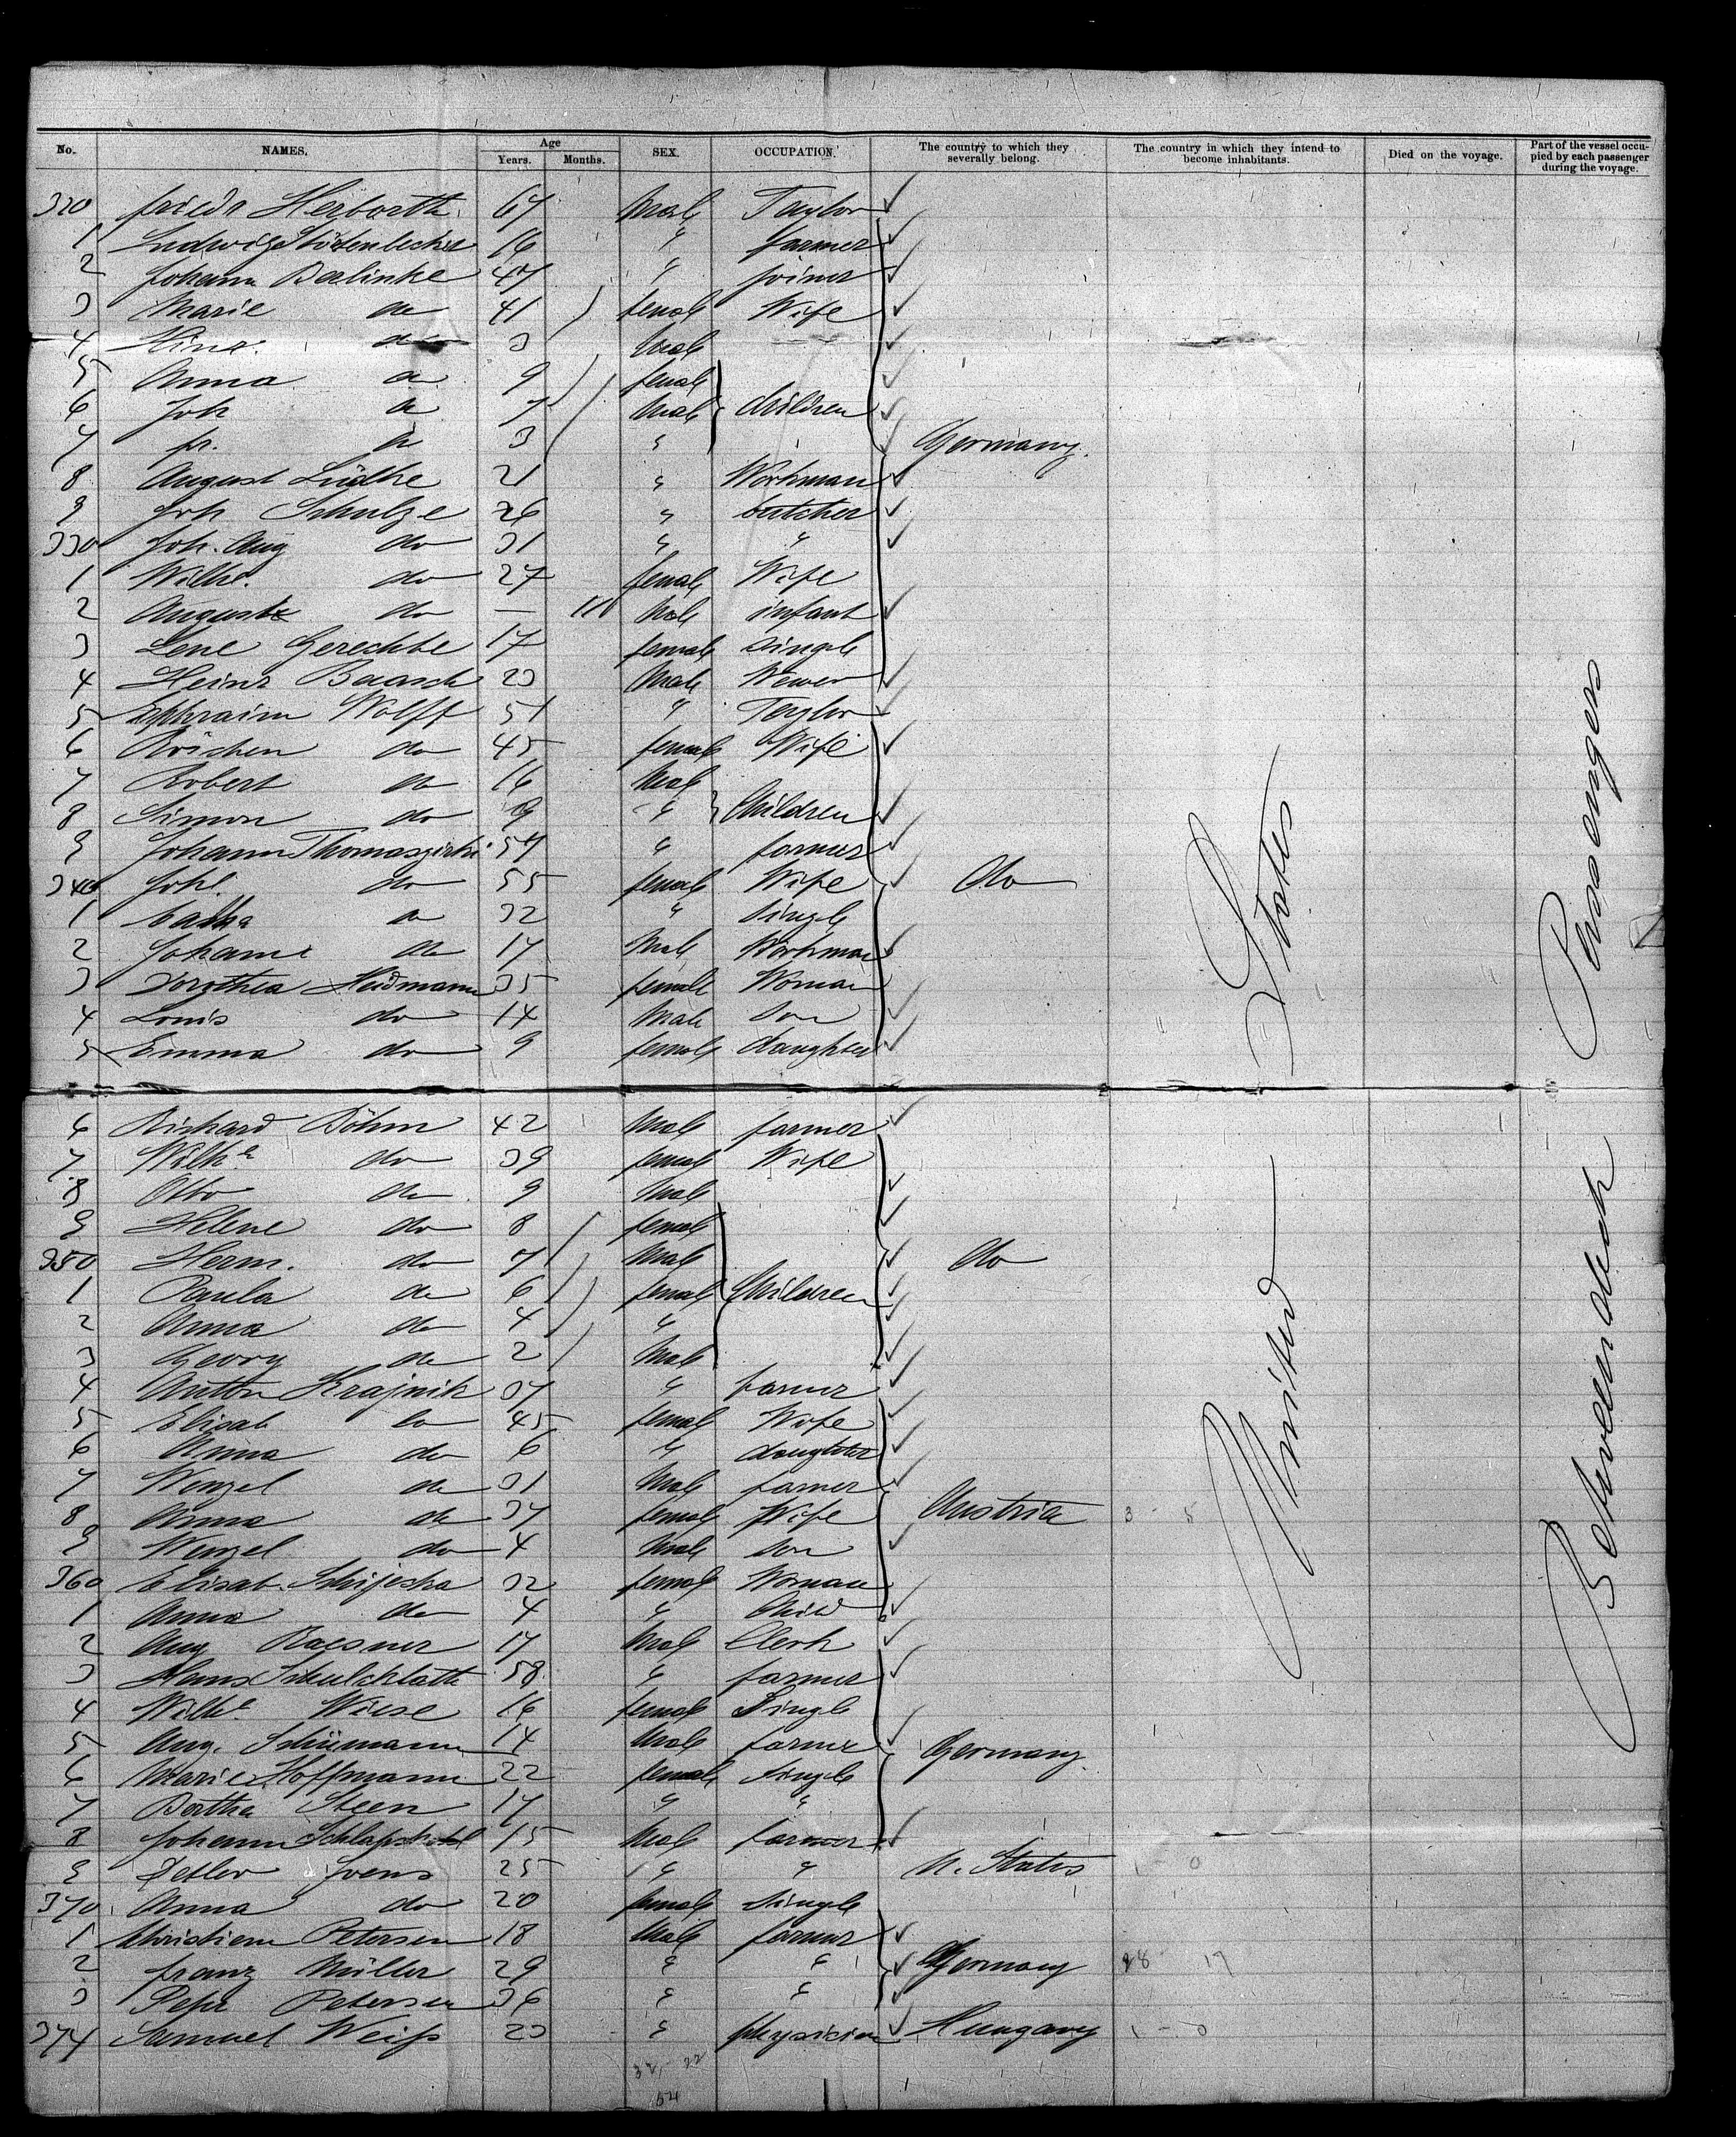 No. NAMES. Age Years. Months. SEX. OCCUPATION. The country to which they severally belong. The country in which they intend to become inhabitants. Died on the voyage. Part of the vessel occupied by each passenger during the voyage.
320 Friedr Herbarth 67 Male Taylor
1 Ludwig 16 " farmer
2 Johann Balinke 47 " joiner
3 Marie do 41 female Wife
4 do 3 Male
5 Anna do 9 female
6 Joh do 7 Male children
7 fr. do 3 " Germany.
8 August Lüdke 21 " Workman
9 Joh Schulze 26 " butcher
330 Joh. Aug do 31 " "
1 Wilhe. do 27 female Wife
2 August do — 11 Male infant
3 Lene Gerechte 17 female single
4 Heinr Baasch 23 Male Wewer
5 Ephraim Wolff 51 " Taylor
6 Röschen do 45 female Wife
7 Robert do 16 Male
8 Simon do 9 " Children
9 Johann 57 " farmer
340 Joh. do 55 female Wife do
1 do 32 " Single
2 Johann do 17 Male Workman
3 Dorothea Heidmann 35 female Woman
4 Louis do 14 Male Son
5 Emma do 9 female daughter
6 Richard Böhm 42 Male farmer
7 Wilhe do 39 female Wife
8 Otto do 9 Male
9 Helene do 8 female
350 Herm. do 7 Male do
1 Paula do 6 female Children
2 Anna do 4 "
3 Georg do 2 Male
4 Anton Krajnik 37 " farmer
5 Elisab do 45 female Wife
6 Anna do 6 " daughter
7 Wenzel do 31 Male farmer
8 Anna do 37 female Wife Austria 3 - 5
9 Wenzel do 4 Male Son
360 Elisab. 32 female Woman
1 Anna do 4 " Child
2 Aug 17 Male Clerk
3 Hans 58 " farmer
4 Wilhe Wiese 16 female Single
5 Aug. Schümann 14 Male farmer Germany.
6 Marie Hoffmann 22 female Single
7 Bertha Steen 17 " "
8 Johann 15 Male farmer
9 Detlev Joens 25 " " U. States 1 - 0
370 Anna do 20 female Single
1 Christian Petersen 18 Male farmer
2 Franz Müller 29 " " Germany 28 - 17
3 Petr Petersen 36 " "
374 Samuel Weiss 23 " physician Hungary 1 - 0
32, 22
54
United States
Betweendeck Passengers